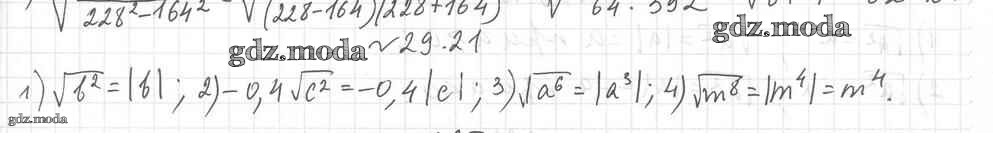 √228²-164² √(228-164)(228+164) √64·392
gdz.moda ~29.21 gdz.moda
1) √b² = |b| ; 2) -0,4√c² = -0,4|c| ; 3) √a⁶ = |a³| ; 4) √m⁸ = |m⁴| = m⁴.
gdz.moda